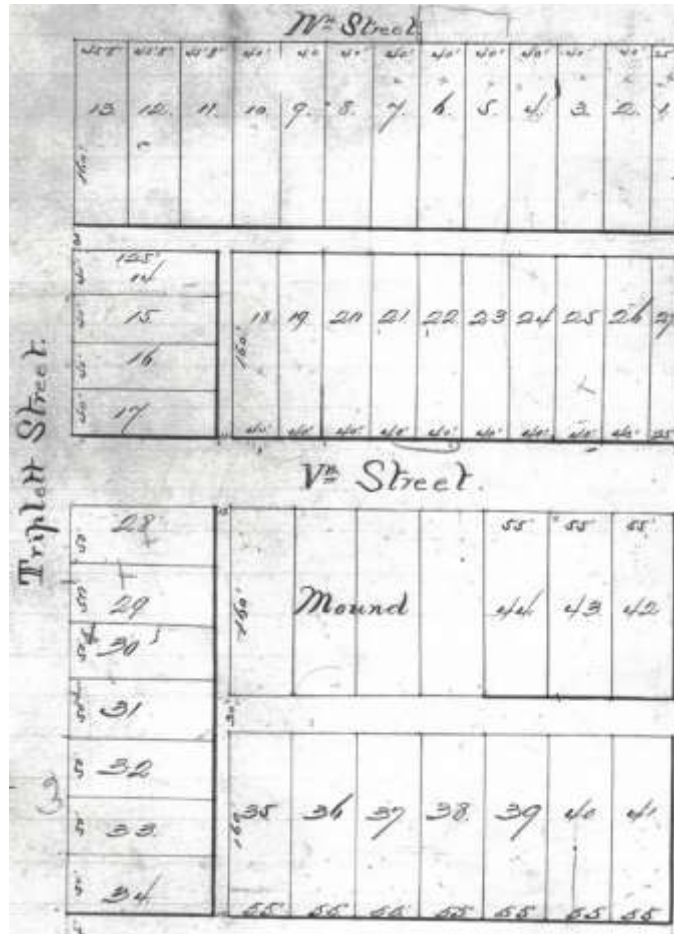 IVth Street
45'8" 45'8" 45'8" 40' 40 40' 40' 40' 40' 40' 40' 40' 25
13. 12. 11. 10. 9. 8. 7. 6. 5. 4. 3. 2. 1.
160'
125'
14
15.
16
17
40' 40' 40'
18 19. 20 21. 22. 23 24 25 26 27
160'
40' 40' 40' 40' 40' 40' 40' 40' 40' 25
Triplett Street.
Vth Street.
28
50'
29
50'
30
50'
31
50'
32
50'
33
50'
34
50'
15
160'
Mound
55' 55' 55'
44 43 42
30'
160
35 36 37 38. 39 40 41
55' 55 55' 55 55' 55 55